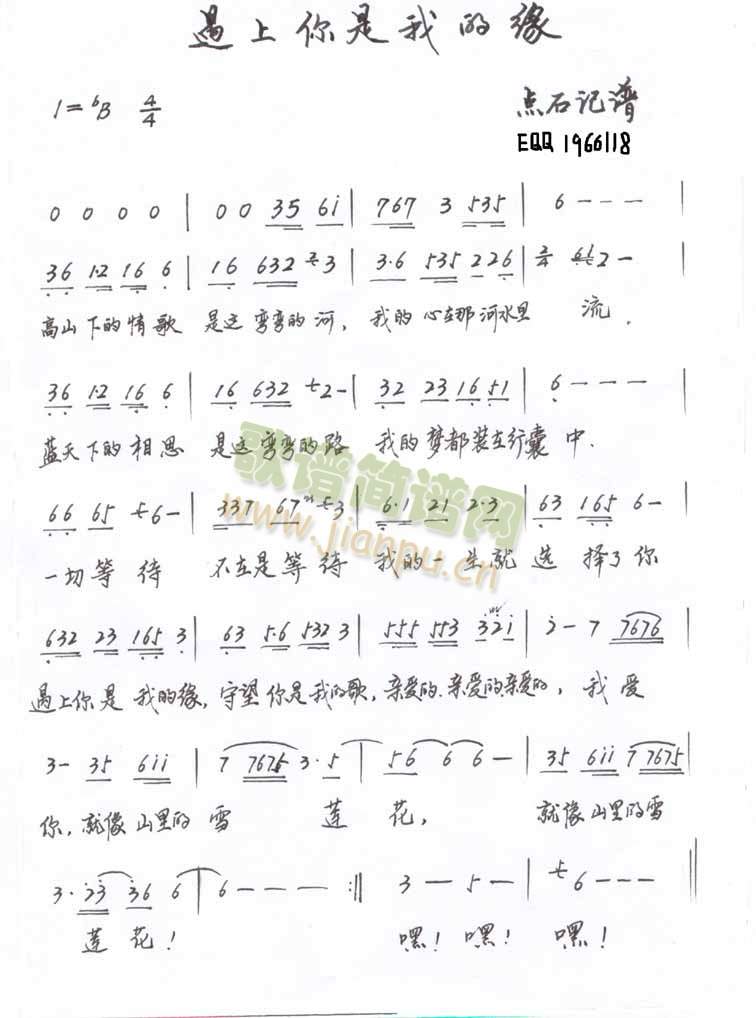 遇上你是我的缘
1=ᵇB 4/4 点石记谱
EQQ 1966118
0 0 0 0 | 0 0 35 6i | 767 3 535 | 6 - - - |
36 1·2 16 6 | 16 632 3 | 3·6 535 226 | 2/4 2 - |
高山下的情歌 是这弯弯的河, 我的心在那河水里 流.
36 1·2 16 6 | 16 632 2 - | 32 23 16 51 | 6 - - - |
蓝天下的相思 是这弯弯的路 我的梦都装在行囊中.
66 65 6 - | 337 67 3 | 6·1 21 2·3 | 63 165 6 - |
一切等待 不在是等待 我的一生就选择了你
632 23 165 3 | 63 5·6 532 3 | 555 553 32i | 2 - 7 7676 |
遇上你是我的缘, 守望你是我的歌, 亲爱的.亲爱的.亲爱的, 我爱
3 - 35 6ii | 7 7675 3·5 | 56 6 6 - | 35 6ii 7 7675 |
你, 就像山里的雪 莲 花, 就像山里的雪
3·23 36 6 | 6 - - - :|| 3 - 5 - | 6 - - - ||
莲花! 嘿! 嘿! 嘿!
歌谱简谱网
www.jianpu.cn